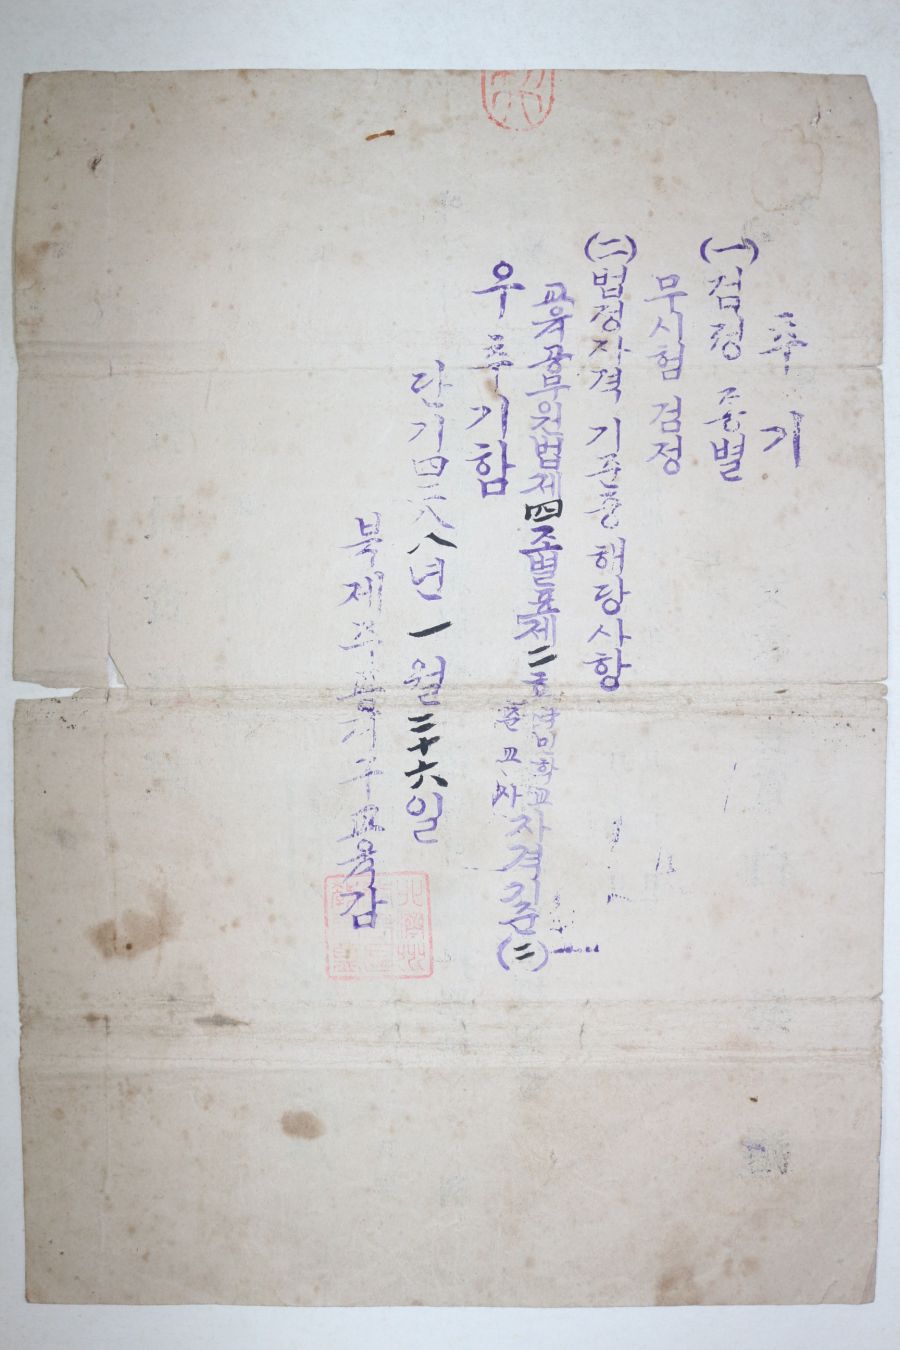 추기
(一) 검정 종별
무시험 검정
(二) 법정자격 기준중 해당사항
교육공무원법제四조별표제二호 국민학교 준교사 자격기준(二)
우 추기함
단기四二八八년 一월 二十六일
북제주군 교육감